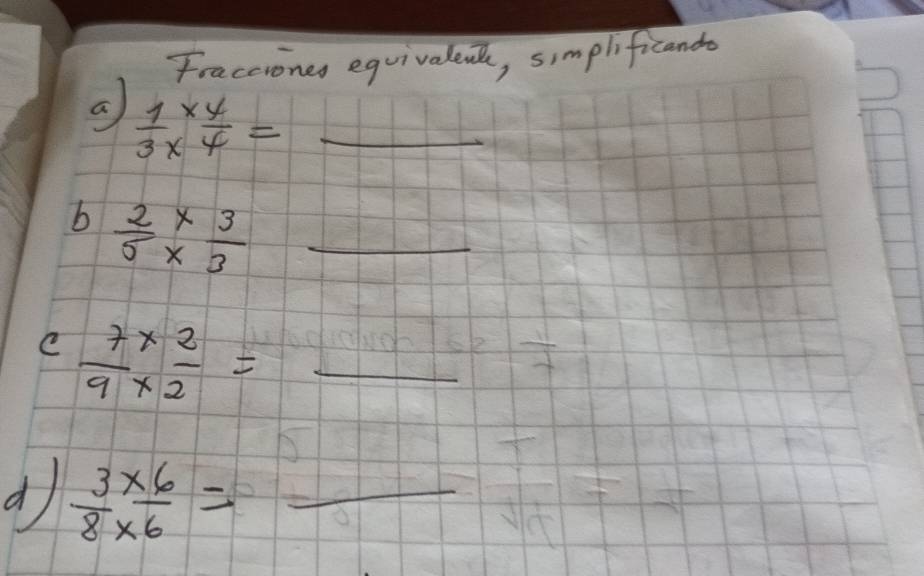 Fracciones equivalente, simplificando
a) 1/3 × × 4/4 = ____
b 2/5 × × 3/3 ____
c 7/9 × × 2/2 = ____
d) 3/8 × × 6/6 = ____